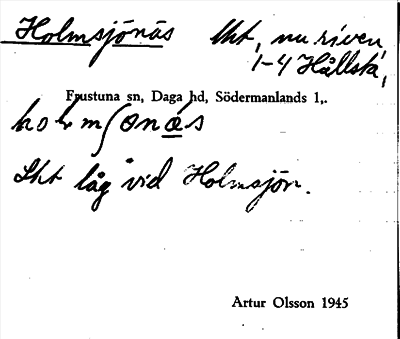 Holmsjönäs lht, nu riven,
1-4 Hållsta,
Frustuna sn, Daga hd, Södermanlands l,.
Lht låg vid Holmsjön.
Artur Olsson 1945